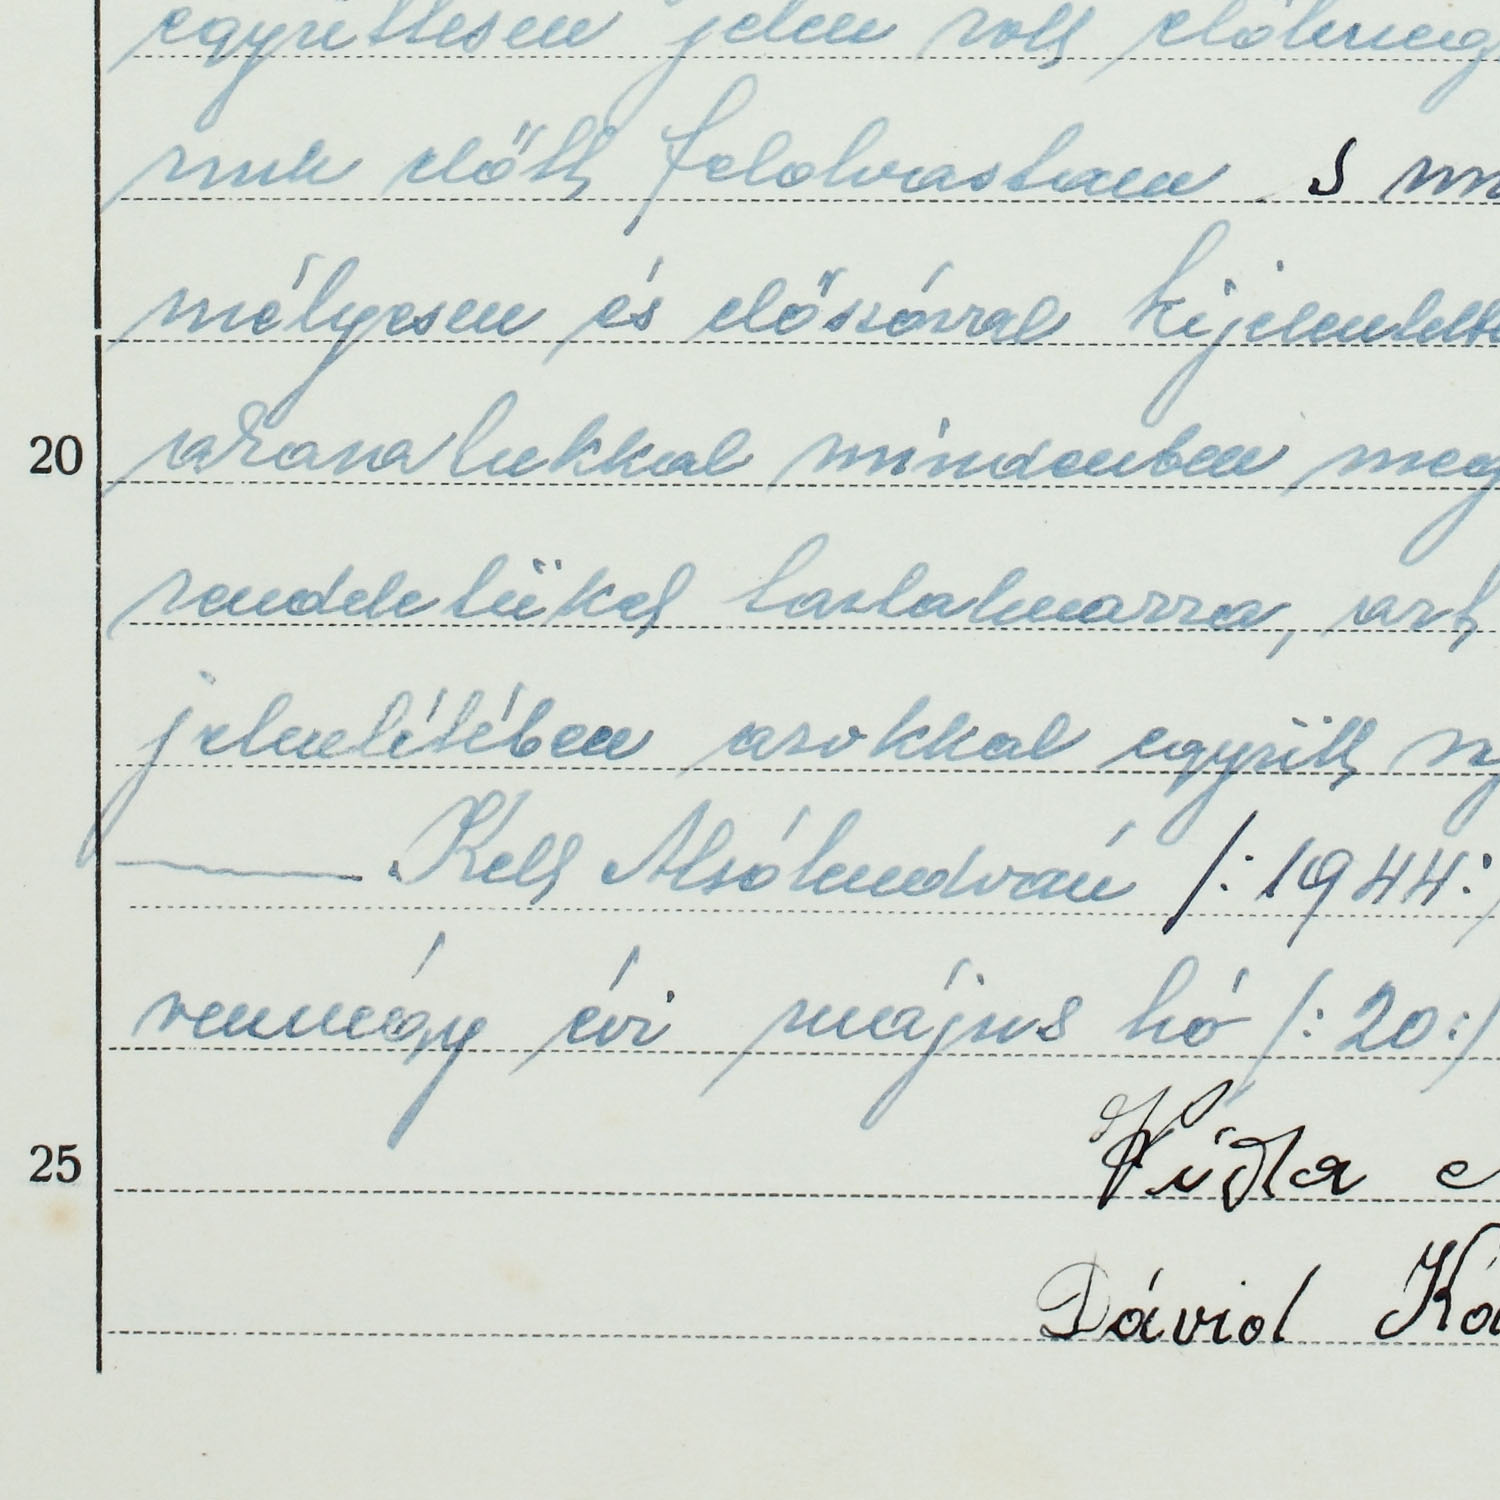 együttesen jelen volt előttünk
nuk előtt felolvastam s
mélyesen és élőszóval kijelentett
20 akaratukkal mindenben meg
rendeletüket tartalmazza, azt
jelenlétében azokkal együtt
Kelt Alsólendván /:1944:/
vennégy évi május hó /:20:/
25 Vida
Dávid